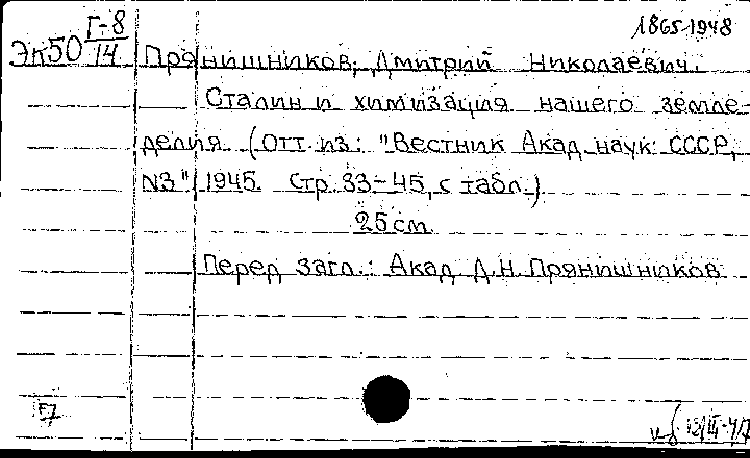 Г-8 1865-1948
Эк50 14 Прянишников, Дмитрий Николаевич.
Сталин и химизация нашего земле-
делия. (Отт. из: "Вестник Акад. наук СССР,
N3" 1945. Стр. 33-45, с табл.)
25 см.
Перед загл.: Акад. Д.Н. Прянишников